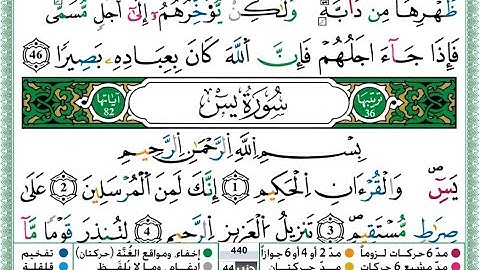 ظَهْرِهَا مِن دَآبَّةٍ وَلَٰكِن يُؤَخِّرُهُمْ إِلَىٰٓ أَجَلٍ مُّسَمًّى
فَإِذَا جَآءَ أَجَلُهُمْ فَإِنَّ ٱللَّهَ كَانَ بِعِبَادِهِۦ بَصِيرًۢا 46
ترتيبها 36 سُورَةُ يسٓ آياتها 82
بِسْمِ ٱللَّهِ ٱلرَّحْمَٰنِ ٱلرَّحِيمِ
يسٓ 1 وَٱلْقُرْءَانِ ٱلْحَكِيمِ 2 إِنَّكَ لَمِنَ ٱلْمُرْسَلِينَ 3 عَلَىٰ
صِرَٰطٍ مُّسْتَقِيمٍ 4 تَنزِيلَ ٱلْعَزِيزِ ٱلرَّحِيمِ 5 لِتُنذِرَ قَوْمًا مَّآ
مدّ 6 حركات لزوماً مدّ 2 أو 4 أو 6 جوازاً 440 إخفاء، ومواقع الغُنَّة (حركتان) تفخيم
مدّ حركتان إدغام، وما لا يُلفَظ قلقلة